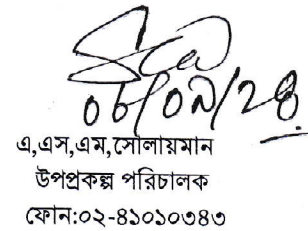 ০৮/০৯/২৪
এ,এস,এম,সোলায়মান
উপপ্রকল্প পরিচালক
ফোন:০২-৪১০১০৩৪৩